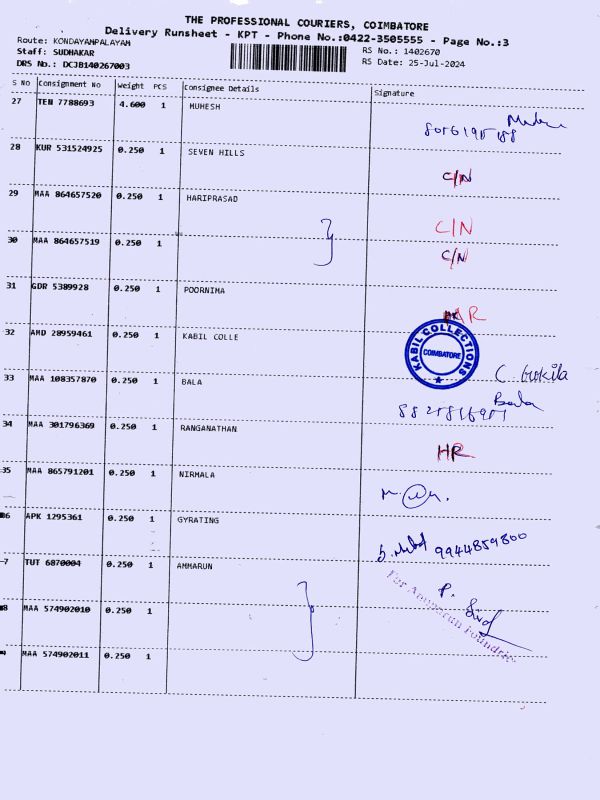 THE PROFESSIONAL COURIERS, COIMBATORE
Delivery Runsheet - KPT - Phone No.:0422-3505555 - Page No.:3
Route: KONDAYAMPALAYAM
Staff: SUDHAKAR
DRS No.: DCJB140267003
RS No.: 1402670
RS Date: 25-Jul-2024
S No Consignment No Weight PCS Consignee Details Signature
27 TEN 7788693 4.600 1 MUHESH
28 KUR 531524925 0.250 1 SEVEN HILLS C/N
29 MAA 864657520 0.250 1 HARIPRASAD C/N
30 MAA 864657519 0.250 1 C/N
31 GDR 5389928 0.250 1 POORNIMA
32 AMD 28959461 0.250 1 KABIL COLLE
KABIL COLLECTIONS
COIMBATORE
C Gokila
33 MAA 108357870 0.250 1 BALA Bala
34 MAA 301796369 0.250 1 RANGANATHAN HR
35 MAA 865791201 0.250 1 NIRMALA
36 APK 1295361 0.250 1 GYRATING 9944859800
7 TUT 6870004 0.250 1 AMMARUN P.
8 MAA 574902010 0.250 1
MAA 574902011 0.250 1